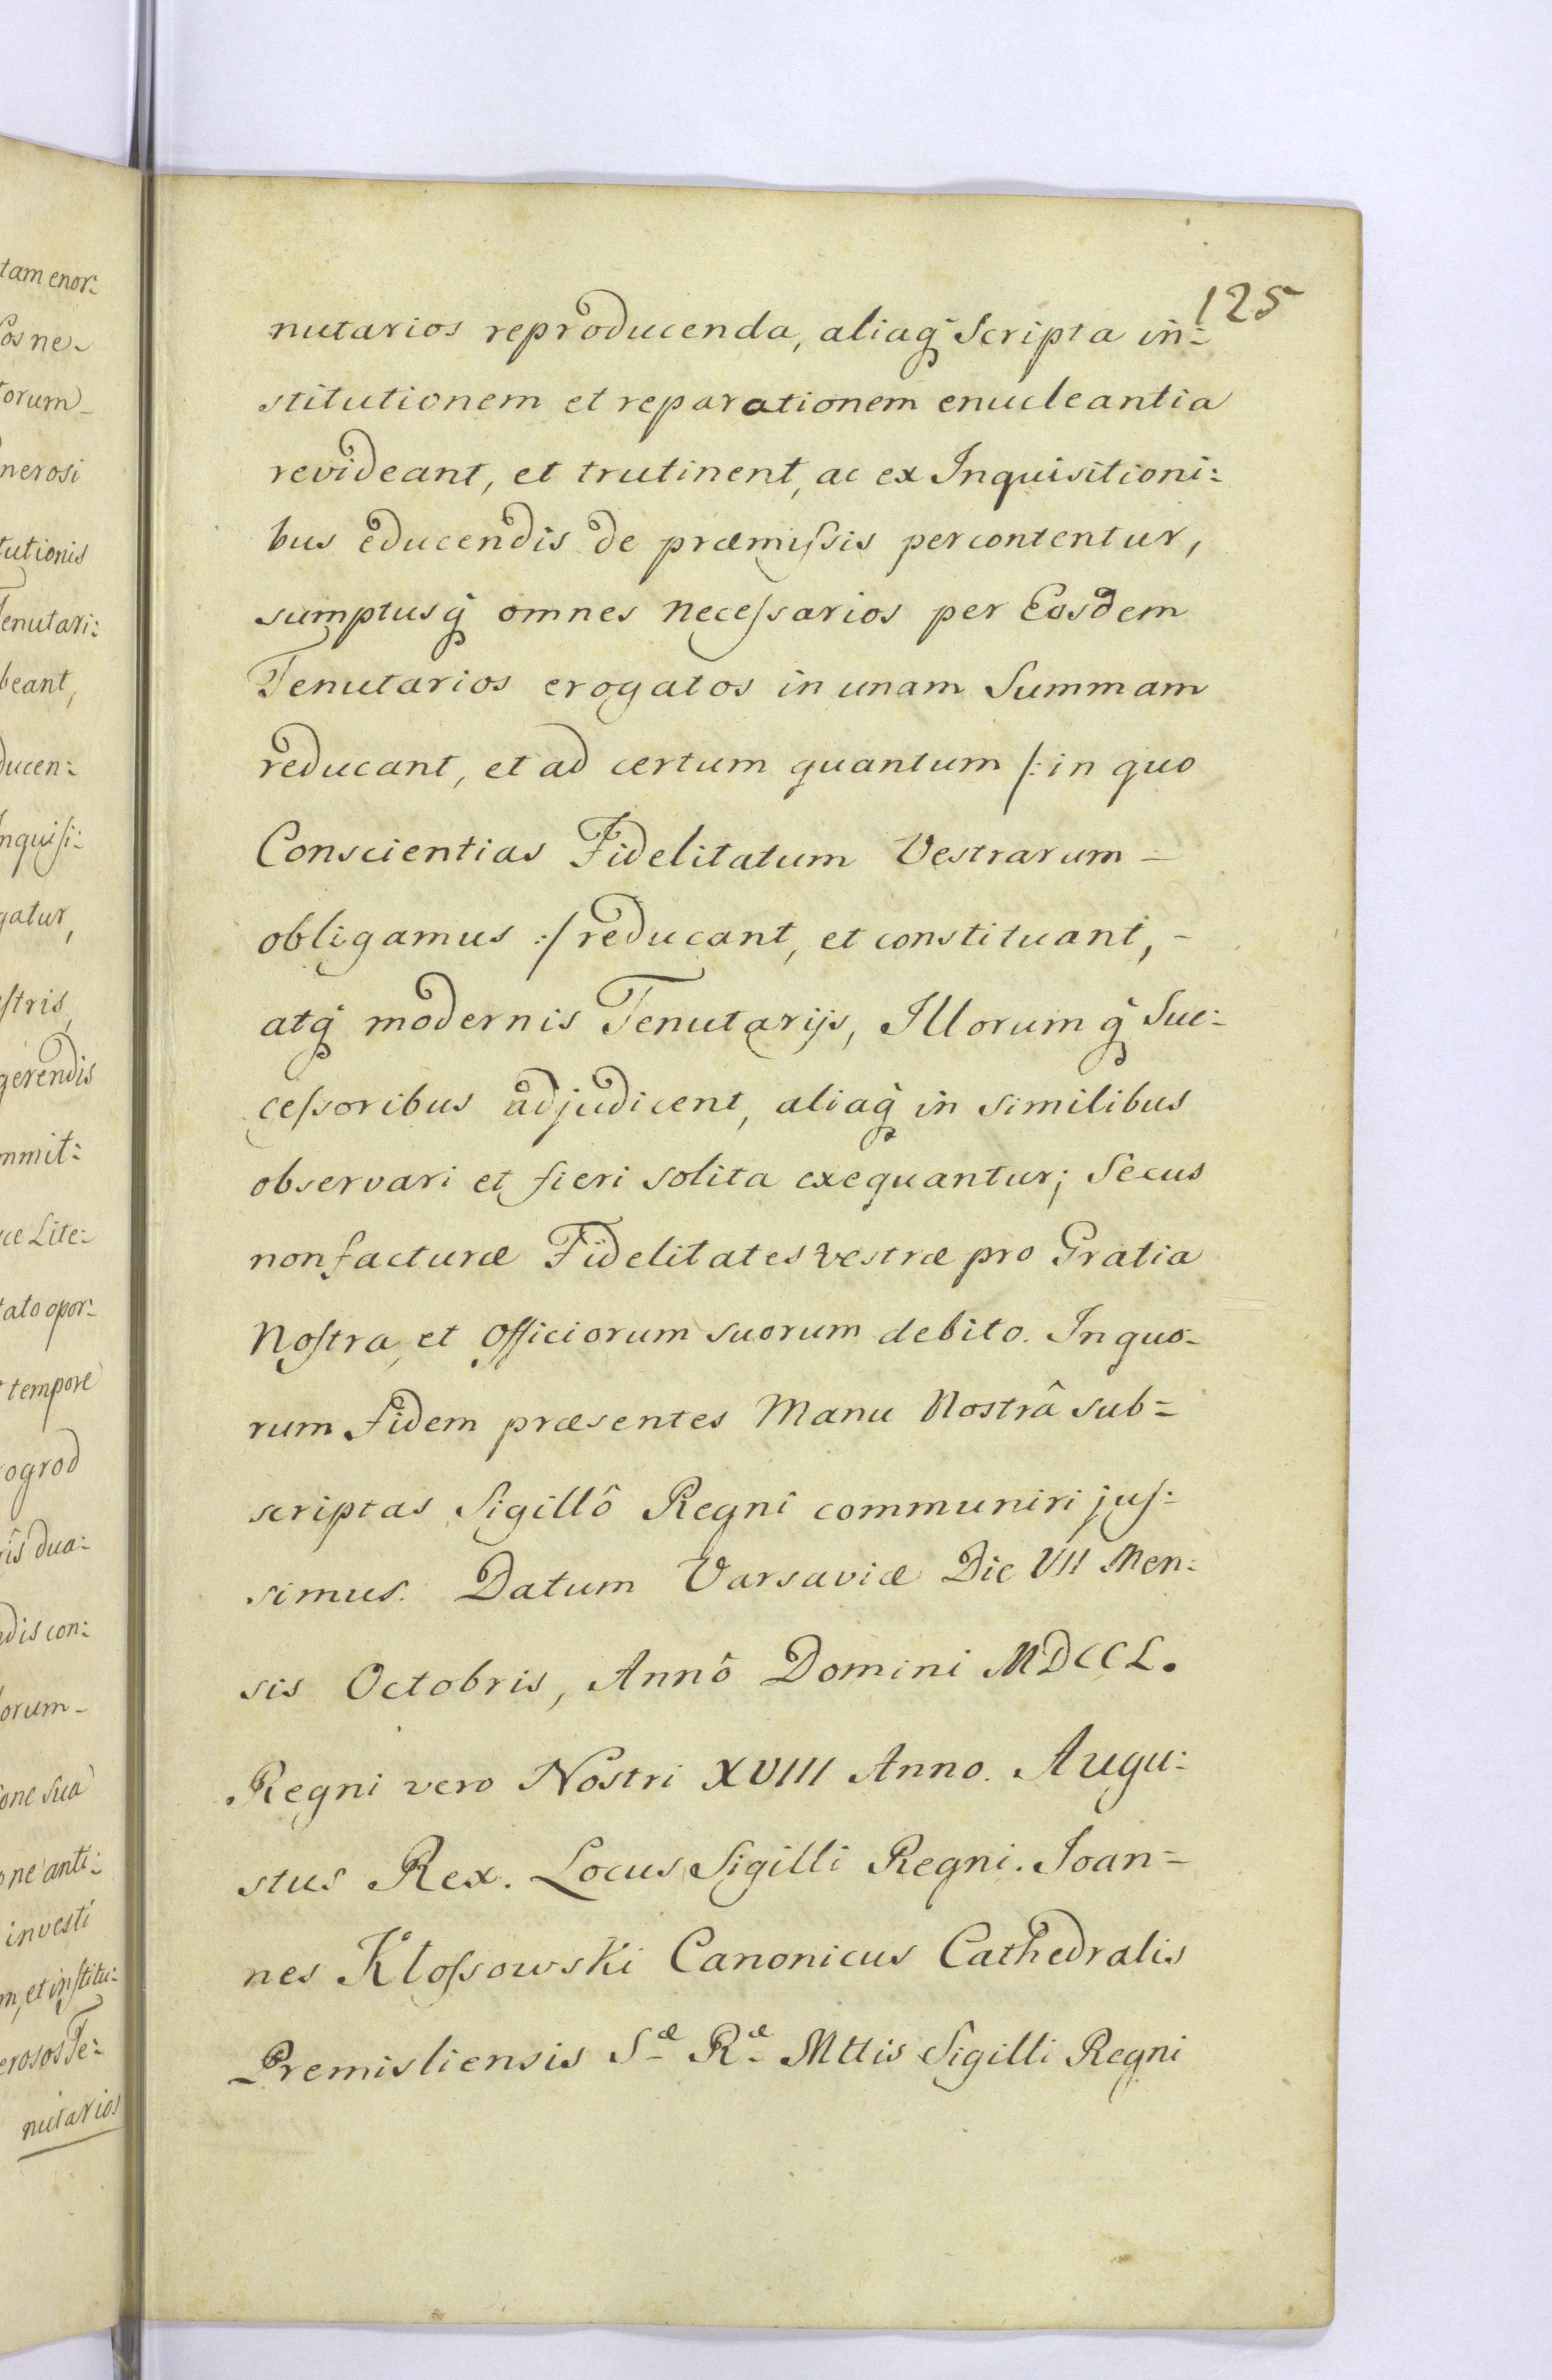 tam enor:
os ne-
torum-
nerosi
tutionis
Tenutari:
beant,
ducen:
nquisi:
gatur,
stris,
gerendis
mmit:
ce Lite:
tato opor:
tempore
ogrod
ris dua:
dis con:
orum-
one sua
ne anti:
investi
m, et institu:
erosos Te:
nutarios
125
nutarios reproducenda, aliaq́ Scripta in:
stitutionem et reparationem enucleantia
revideant, et trutinent, ac ex Inquisitioni:
bus educendis de præmiſsis percontentur,
sumptusq́ omnes neceſsarios per Eosdem
Tenutarios erogatos in unam Summam
reducant, et ad certum quantum /: in quo
Conscientias Fidelitatum Vestrarum -
obligamus :/ reducant, et constituant, -
atq́ modernis Tenutarijs, Illorumq́ Suc:
ceſsoribus adjudicent, aliaq́ in similibus
observari et fieri solita exequantur; Secus
non facturæ Fidelitates vestræ pro Gratia
Noſtra, et Officiorum suorum debito. In quo-
rum fidem præsentes Manu Nostrâ sub=
scriptas Sigillô Regni communiri juſ:
simus. Datum Varsaviæ Die VII Men:
sis Octobris, Annô Domini MDCCL.
Regni vero Nostri XVIII Anno. Augu:
stus Rex. Locus Sigilli Regni. Joan=
nes Kloſsowski Canonicus Cathedralis
Premisliensis Sæ Ræ Mttis Sigilli Regni